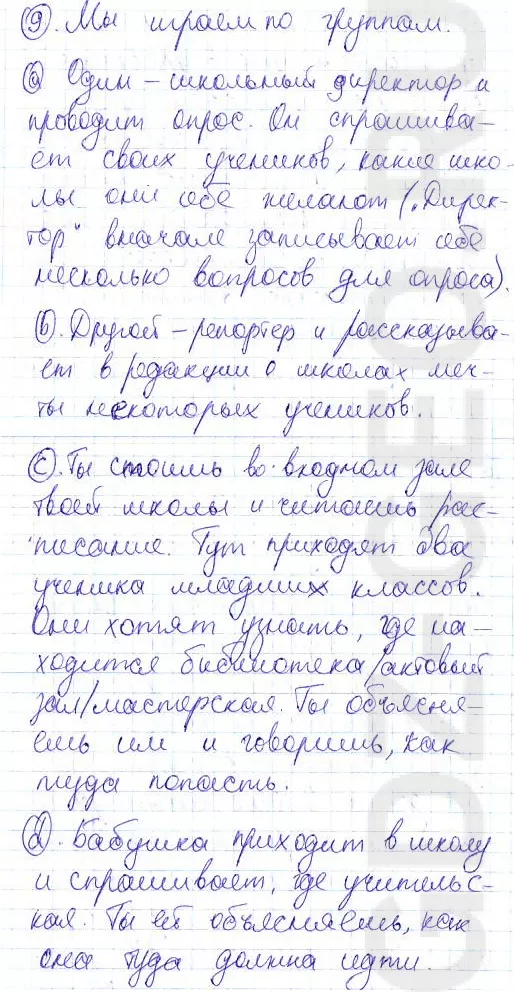 9. Мы играем по группам.
a Один – школьный директор и
проводит опрос. Он спрашива-
ет своих учеников, какие шко-
лы они себе желают ("Дирек-
тор" вначале записывает себе
несколько вопросов для опроса).
b. Другой – репортер и рассказыва-
ет в редакции о школах меч-
ты некоторых учеников.
c. Ты стоишь во входном зале
твоей школы и читаешь рас-
писание. Тут приходят два
ученика младших классов.
Они хотят узнать, где на-
ходится библиотека/актовый
зал/мастерская. Ты объясня-
ешь им и говоришь, как
туда попасть.
d. Бабушка приходит в школу
и спрашивает, где учительс-
кая. Ты ей объясняешь, как
она туда должна идти.
GDZGEO.RU